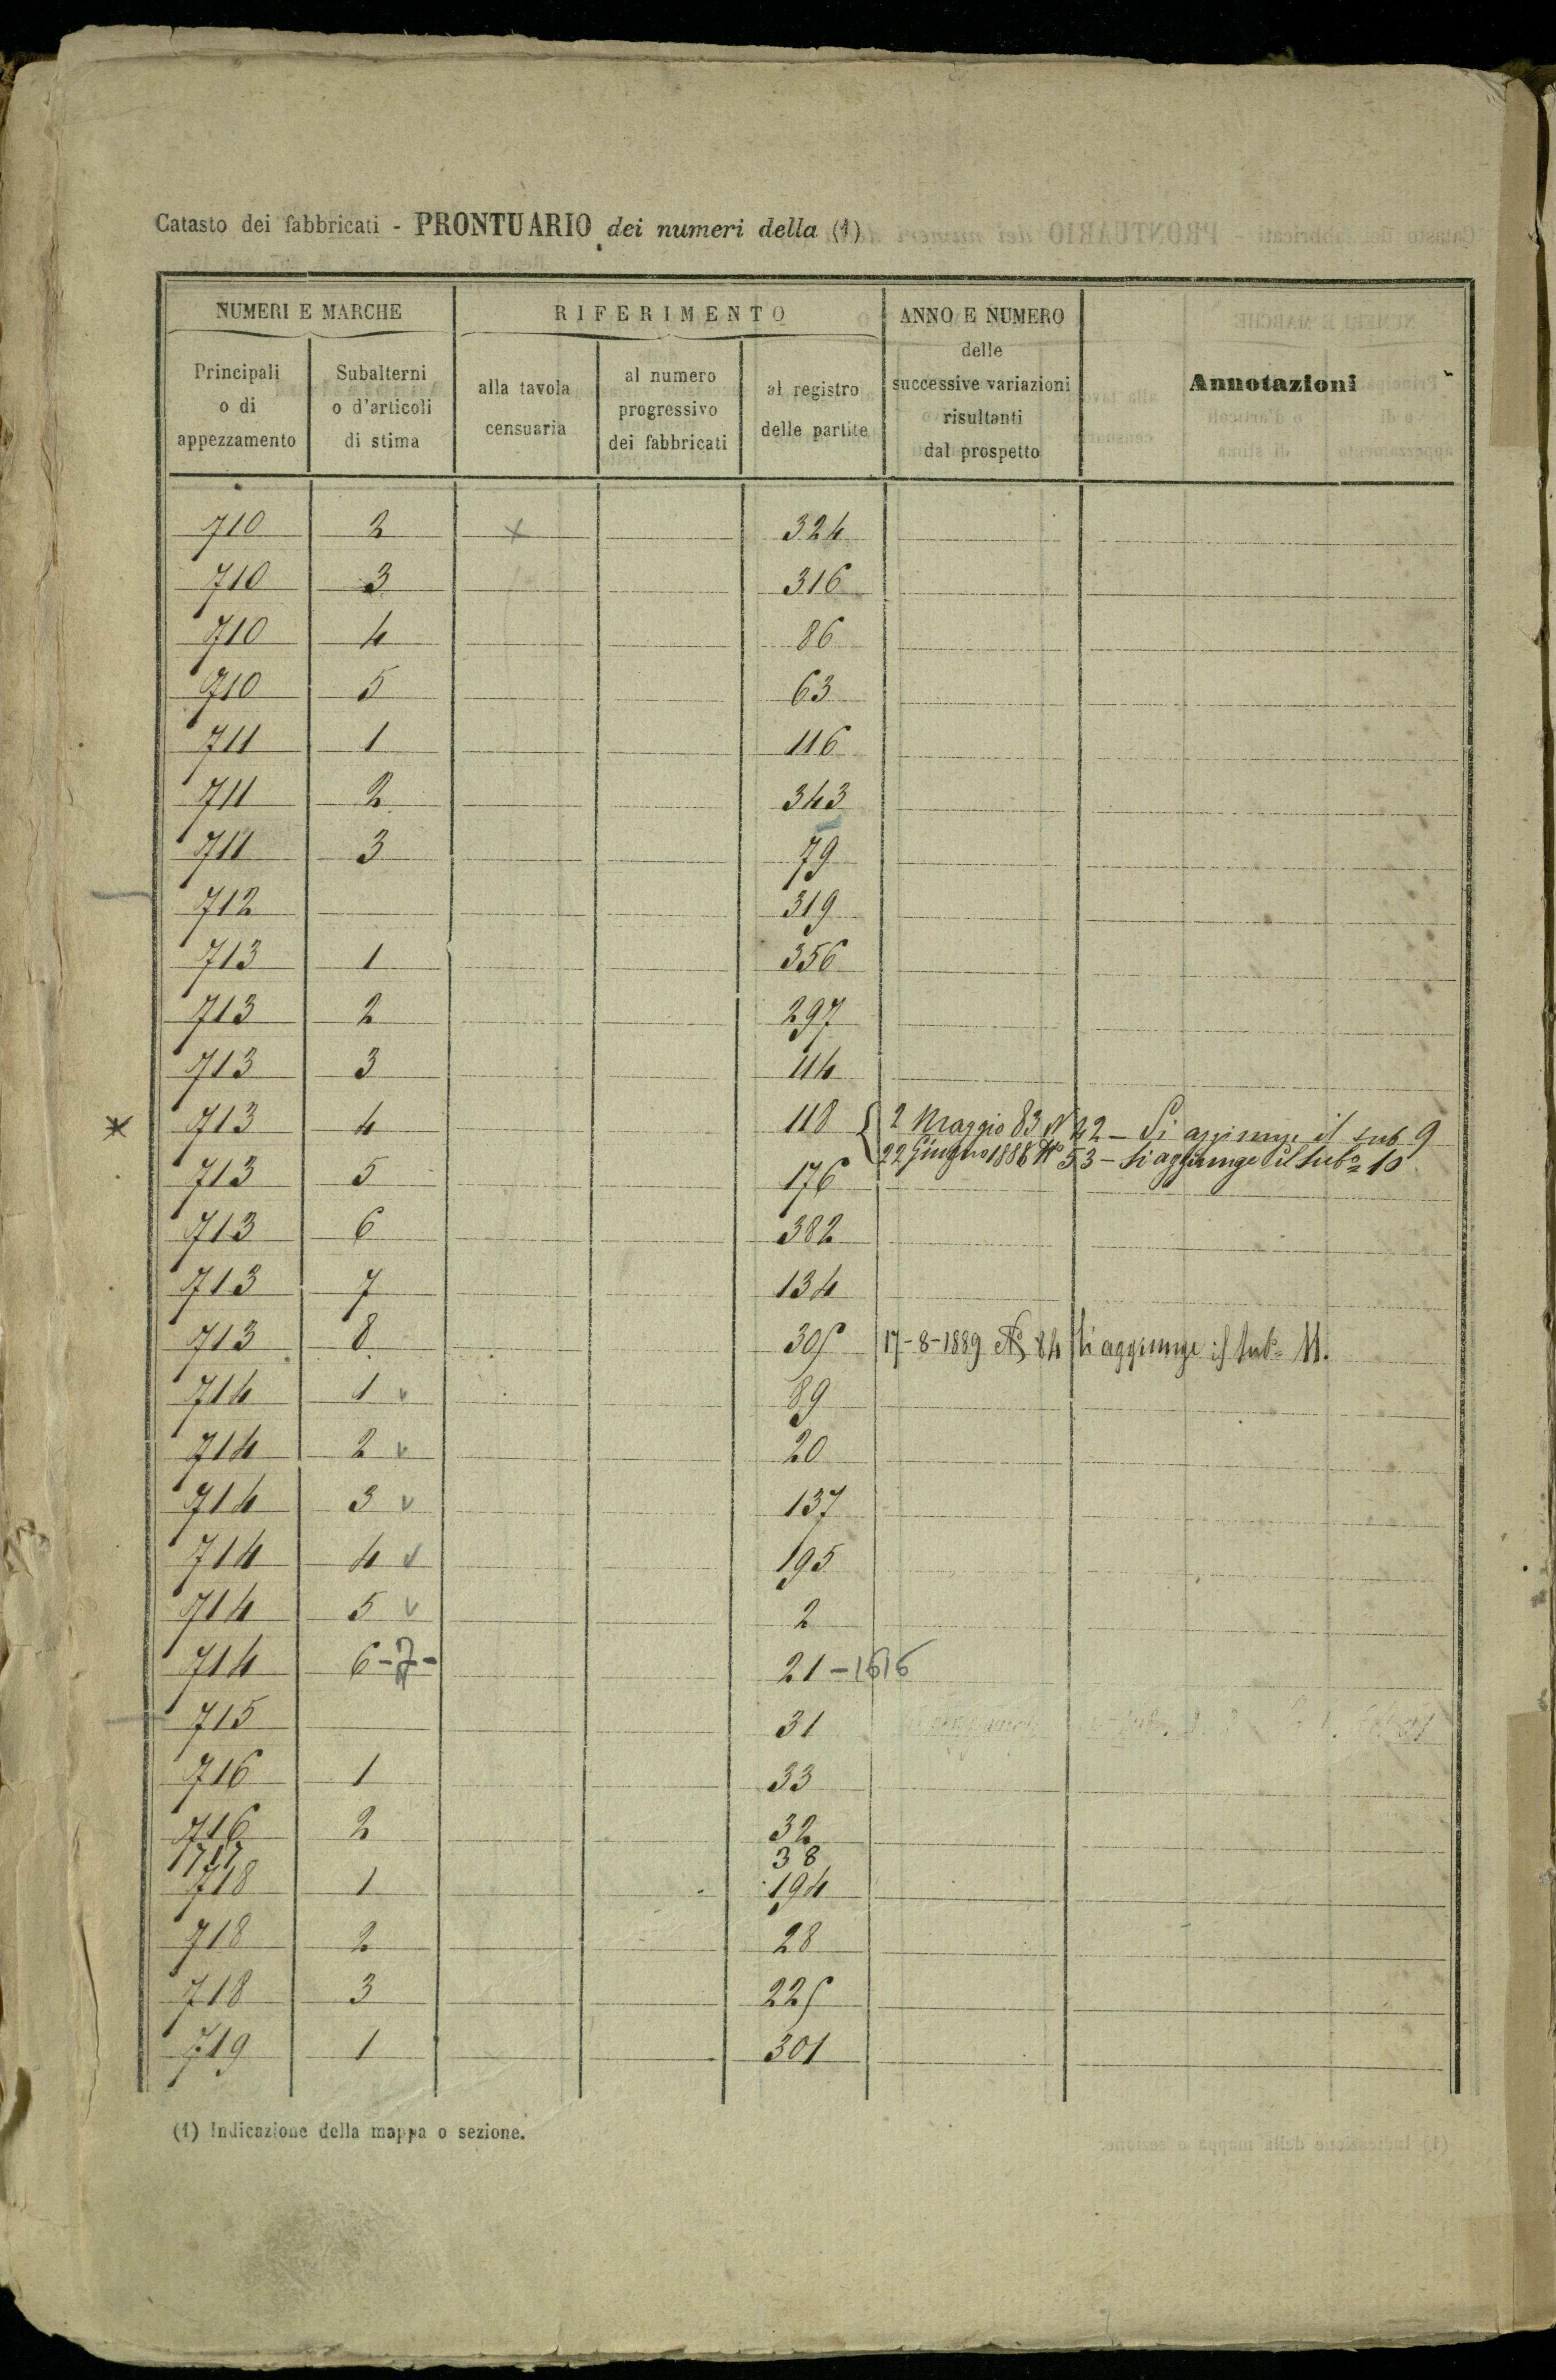 Catasto dei fabbricati - PRONTUARIO dei numeri della (1)
NUMERI E MARCHE RIFERIMENTO ANNO E NUMERO delle successive variazioni risultanti dal prospetto Annotazioni
Principali o di appezzamento Subalterni o d'articoli di stima alla tavola censuaria al numero progressivo dei fabbricati al registro delle partite
710 2 x 324
710 3 316
710 4 86
710 5 63
711 1 116
711 2 343
711 3 79
712 319
713 1 356
713 2 297
713 3 114
713 4 118 2 Maggio 83 N 42 - Si aggiunge il sub 9
22 Giugno 1886 No 53 - Si aggiunge il subo 10
713 5 176
713 6 382
713 7 134
713 8 305 17-8-1889 No 84 Si aggiunge il subo 11.
714 1 v 89
714 2 v 20
714 3 v 137
714 4 v 195
714 5 v 2
714 6-7- 21-1616
715 31
716 1 33
716 2 32
717 38
718 1 194
718 2 28
718 3 225
719 1 301
(1) Indicazione della mappa o sezione.